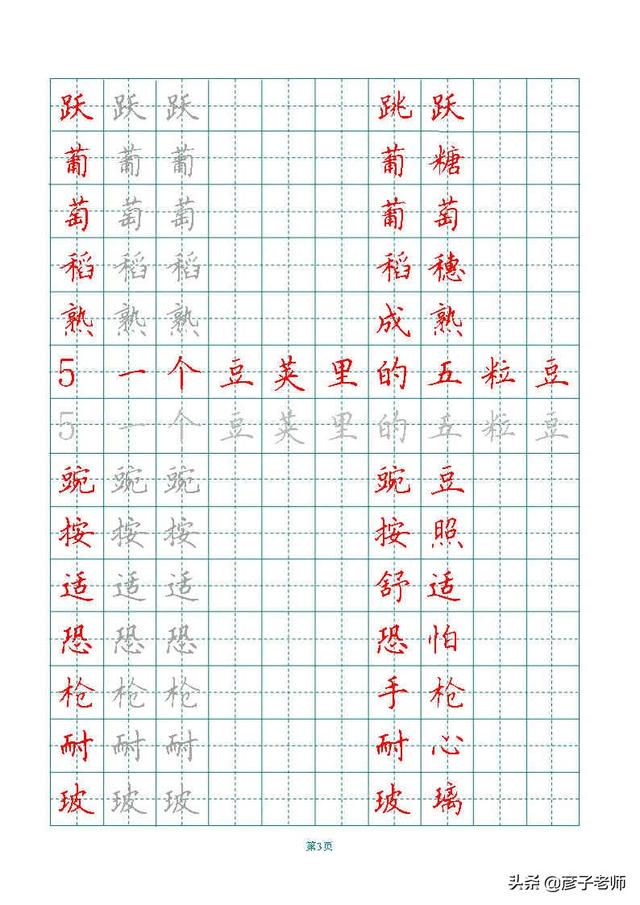 跃 跃 跃 跳 跃
葡 葡 葡 葡 糖
萄 萄 萄 葡 萄
稻 稻 稻 稻 穗
熟 熟 熟 成 熟
5 一 个 豆 荚 里 的 五 粒 豆
5 一 个 豆 荚 里 的 五 粒 豆
豌 豌 豌 豌 豆
按 按 按 按 照
适 适 适 舒 适
恐 恐 恐 恐 怕
枪 枪 枪 手 枪
耐 耐 耐 耐 心
玻 玻 玻 玻 璃
第3页
头条 @彦子老师